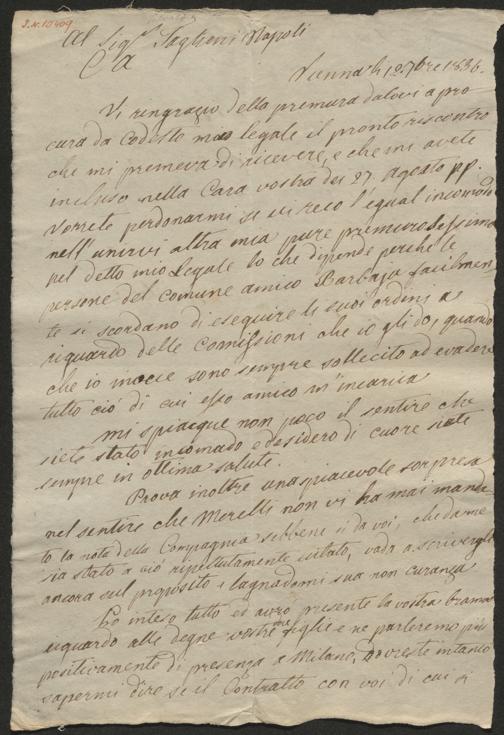 I.N. 10409
Al Sigr. Taglioni Napoli
C A
Vienna li 7bre 1836.
Vi ringrazio della premura datavi a pro
cura da codesto mio legale il pronto riscontro
che mi premeva di ricevere, e che mi avete
incluso nella Cara vostra dei 27. Agosto pp.
Vorrete perdonarmi se vi reco l'egual incomodo
nell' unirvi altra mia pure premurosissima
pel detto mio Legale lo che dipende perchè le
persone del comune amico Barbaja facilmen
te si scordano di eseguire li suoi ordini a
riguardo delle Comissioni che io gli do, quando
che io invece sono sempre sollecito ad evadere
tutto ciò di cui esso amico m'incarica
Mi spiacque non poco il sentire che
siete stato incomodo e desidero di cuore siate
sempre in ottima salute.
Provai inoltre una spiacevole sorpresa
nel sentire che Merelli non vi ha mai manda
to la nota della Compagnia sebbene sì da voi, che da me
sia stato a ciò ripetutamente invitato, vado a scrivergli
ancora sul proposito e lagnadomi sua non curanza
Ho inteso tutto ed avrò presente la vostra brama
riguardo alle degne vostre due figlie e ne parleremo più
positivamente di presenza a Milano, Dovreste intanto
sapermi dire se il Contratto con voi di cui si